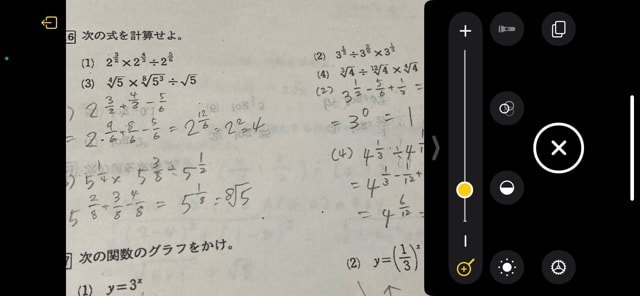 6 次の式を計算せよ。
(1) 2^{3/2}×2^{4/3}÷2^{5/6}
(2) 3^{1/2}÷3^{5/6}×3^{1/3}
(3) ⁴√5×⁸√5³÷√5
(4) ³√4÷¹²√4×⁴√4
) 2^{3/2+4/3-5/6}
= 2^{9/6+8/6-5/6} = 2^{12/6} = 2² = 4
(2) 3^{1/2-5/6+1/3} =
= 3⁰ = 1
) 5^{1/4}× 5^{3/8}÷5^{1/2}
5^{2/8+3/8-4/8} = 5^{1/8} = ⁸√5
(4) 4^{1/3}÷4
= 4^{1/3-1/12+
= 4^{6/12} =
次の関数のグラフをかけ。
(1) y=3ˣ
(2) y=(1/3)ˣ